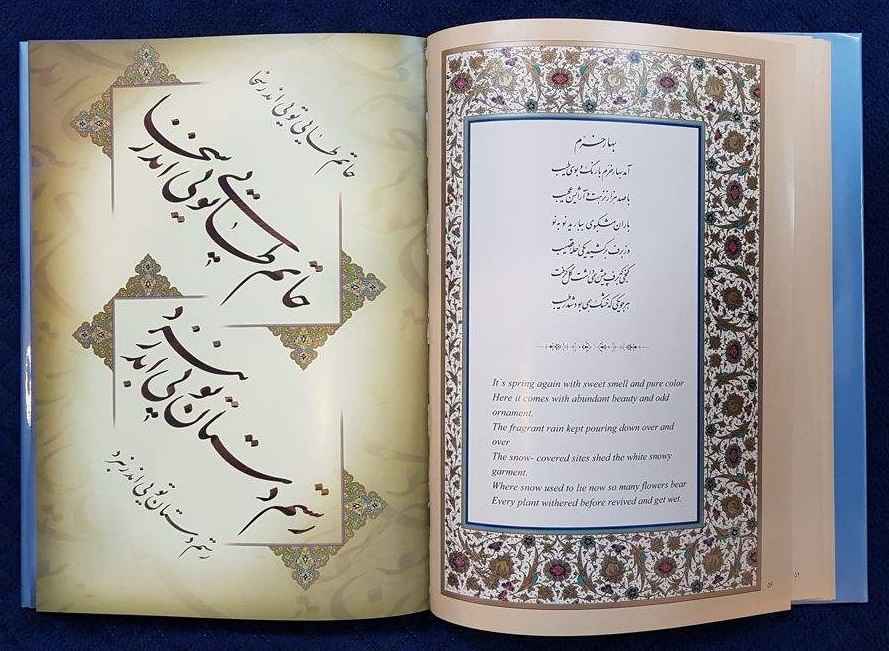 حاتم طایی تویی اندر سخا
حاتم طایی تویی اندر سخا
رستم دستان تویی اندر نبرد
رستم دستان تویی اندر نبرد
بهار خرّم
آمد بهار خرم با رنگ و بوی طیب
با صد هزار نزهت و آرایش عجیب
باران مشکبوی ببارید نو به نو
وز برف برکشید یکی حله قصیب
کنجی که برف پیش همی داشت گل گرفت
هر جویکی که خشک همی بود شد رطیب
It's spring again with sweet smell and pure color
Here it comes with abundant beauty and odd
ornament.
The fragrant rain kept pouring down over and
over
The snow- covered sites shed the white snowy
garment.
Where snow used to lie now so many flowers bear
Every plant withered before revived and get wet.